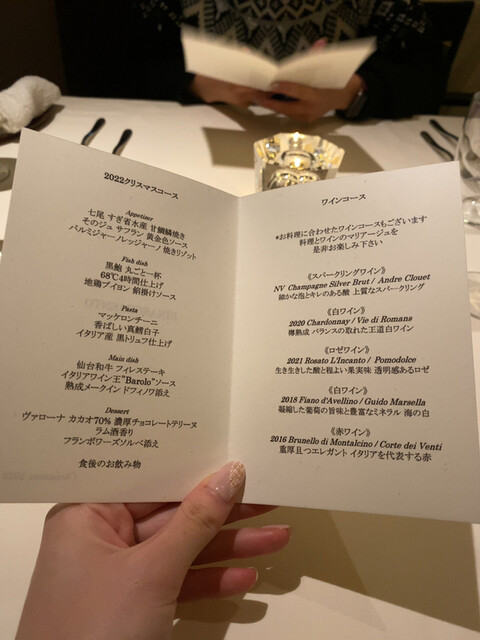 2022クリスマスコース
Appetizer
七尾 すぎ省水産 甘鯛鱗焼き
そのジュ サフラン 黄金色ソース
パルミジャーノレッジャーノ 焼きリゾット
Fish dish
黒鮑 丸ごと一杯
68℃4時間仕上げ
地鶏ブイヨン 餡掛けソース
Pasta
マッケロンチーニ
香ばしい真鱈白子
イタリア産 黒トリュフ仕上げ
Main dish
仙台和牛 フィレステーキ
イタリアワイン王"Barolo"ソース
熟成メークイン ドフィノワ添え
Dessert
ヴァローナ カカオ70% 濃厚チョコレートテリーヌ
ラム酒香り
フランボワーズソルベ添え
食後のお飲み物
ワインコース
*お料理に合わせたワインコースもございます
料理とワインのマリアージュを
是非お楽しみ下さい
《スパークリングワイン》
NV Champagne Silver Brut / Andre Clouet
細かな泡とキレのある酸 上質なスパークリング
《白ワイン》
2020 Chardonnay / Vie di Romans
樽熟成 バランスの取れた王道白ワイン
《ロゼワイン》
2021 Rosato L'Incanto / Pomodolce
生き生きした酸と程よい果実味 透明感あるロゼ
《白ワイン》
2018 Fiano d'Avellino / Guido Marsella
凝縮した葡萄の旨味と豊富なミネラル 海の白
《赤ワイン》
2016 Brunello di Montalcino / Corte dei Venti
重厚且つエレガント イタリアを代表する赤